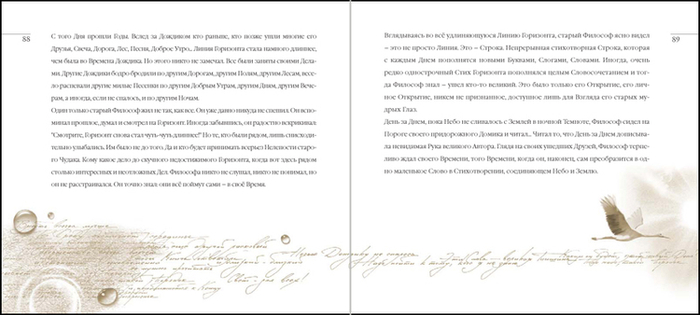 88
С того Дня прошли Годы. Вслед за Дождиком кто раньше, кто позже ушли многие его
Друзья, Свеча, Дорога, Лес, Песня, Доброе Утро... Линия Горизонта стала намного длиннее,
чем была во Времена Дождика. Но этого никто не замечал. Все были заняты своими Дела-
ми. Другие Дождики бодро бродили по другим Дорогам, другим Полям, другим Лесам, весе-
ло распевали другие милые Песенки по другим Добрым Утрам, другим Дням, другим Вече-
рам, а иногда, если не спалось, и по другим Ночам.
Один только старый Философ жил не так, как все. Он уже давно никуда не спешил. Он вспо-
минал прошлое, думал и смотрел на Горизонт. Иногда забывшись, он радостно вскрикивал:
"Смотрите, Горизонт снова стал чуть-чуть длиннее!" Но те, кто были рядом, лишь снисходи-
тельно улыбались. Им было не до того. Да и кто будет принимать всерьез Нелепости старо-
го Чудака. Кому какое дело до скучного недостижимого Горизонта, когда вот здесь рядом
столько интересных и неотложных Дел. Философа никто не слушал, никто не понимал, но
он не расстраивался. Он точно знал: они всё поймут сами – в своё Время.
89
Вглядываясь во всё удлиняющуюся Линию Горизонта, старый Философ ясно видел
– это не просто Линия. Это – Строка. Непрерывная стихотворная Строка, которая
с каждым Днем пополнятся новыми Буквами, Слогами, Словами. Иногда, очень
редко однострочный Стих Горизонта пополнялся целым Словосочетанием и тог-
да Философ знал – ушел кто-то великий. Это было только его Открытие, его лич-
ное Открытие, никем не признанное, доступное лишь для Взгляда его старых му-
дрых Глаз.
День за Днем, пока Небо не сливалось с Землей в ночной Темноте, Философ сидел на
Пороге своего придорожного Домика и читал... Читал то, что День за Днем дописыва-
ла невидимая Рука великого Автора. Глядя на своих ушедших Друзей, Философ терпе-
ливо ждал своего Времени, того Времени, когда он, наконец, сам преобразится в од-
но маленькое Слово в Стихотворении, соединяющем Небо и Землю.